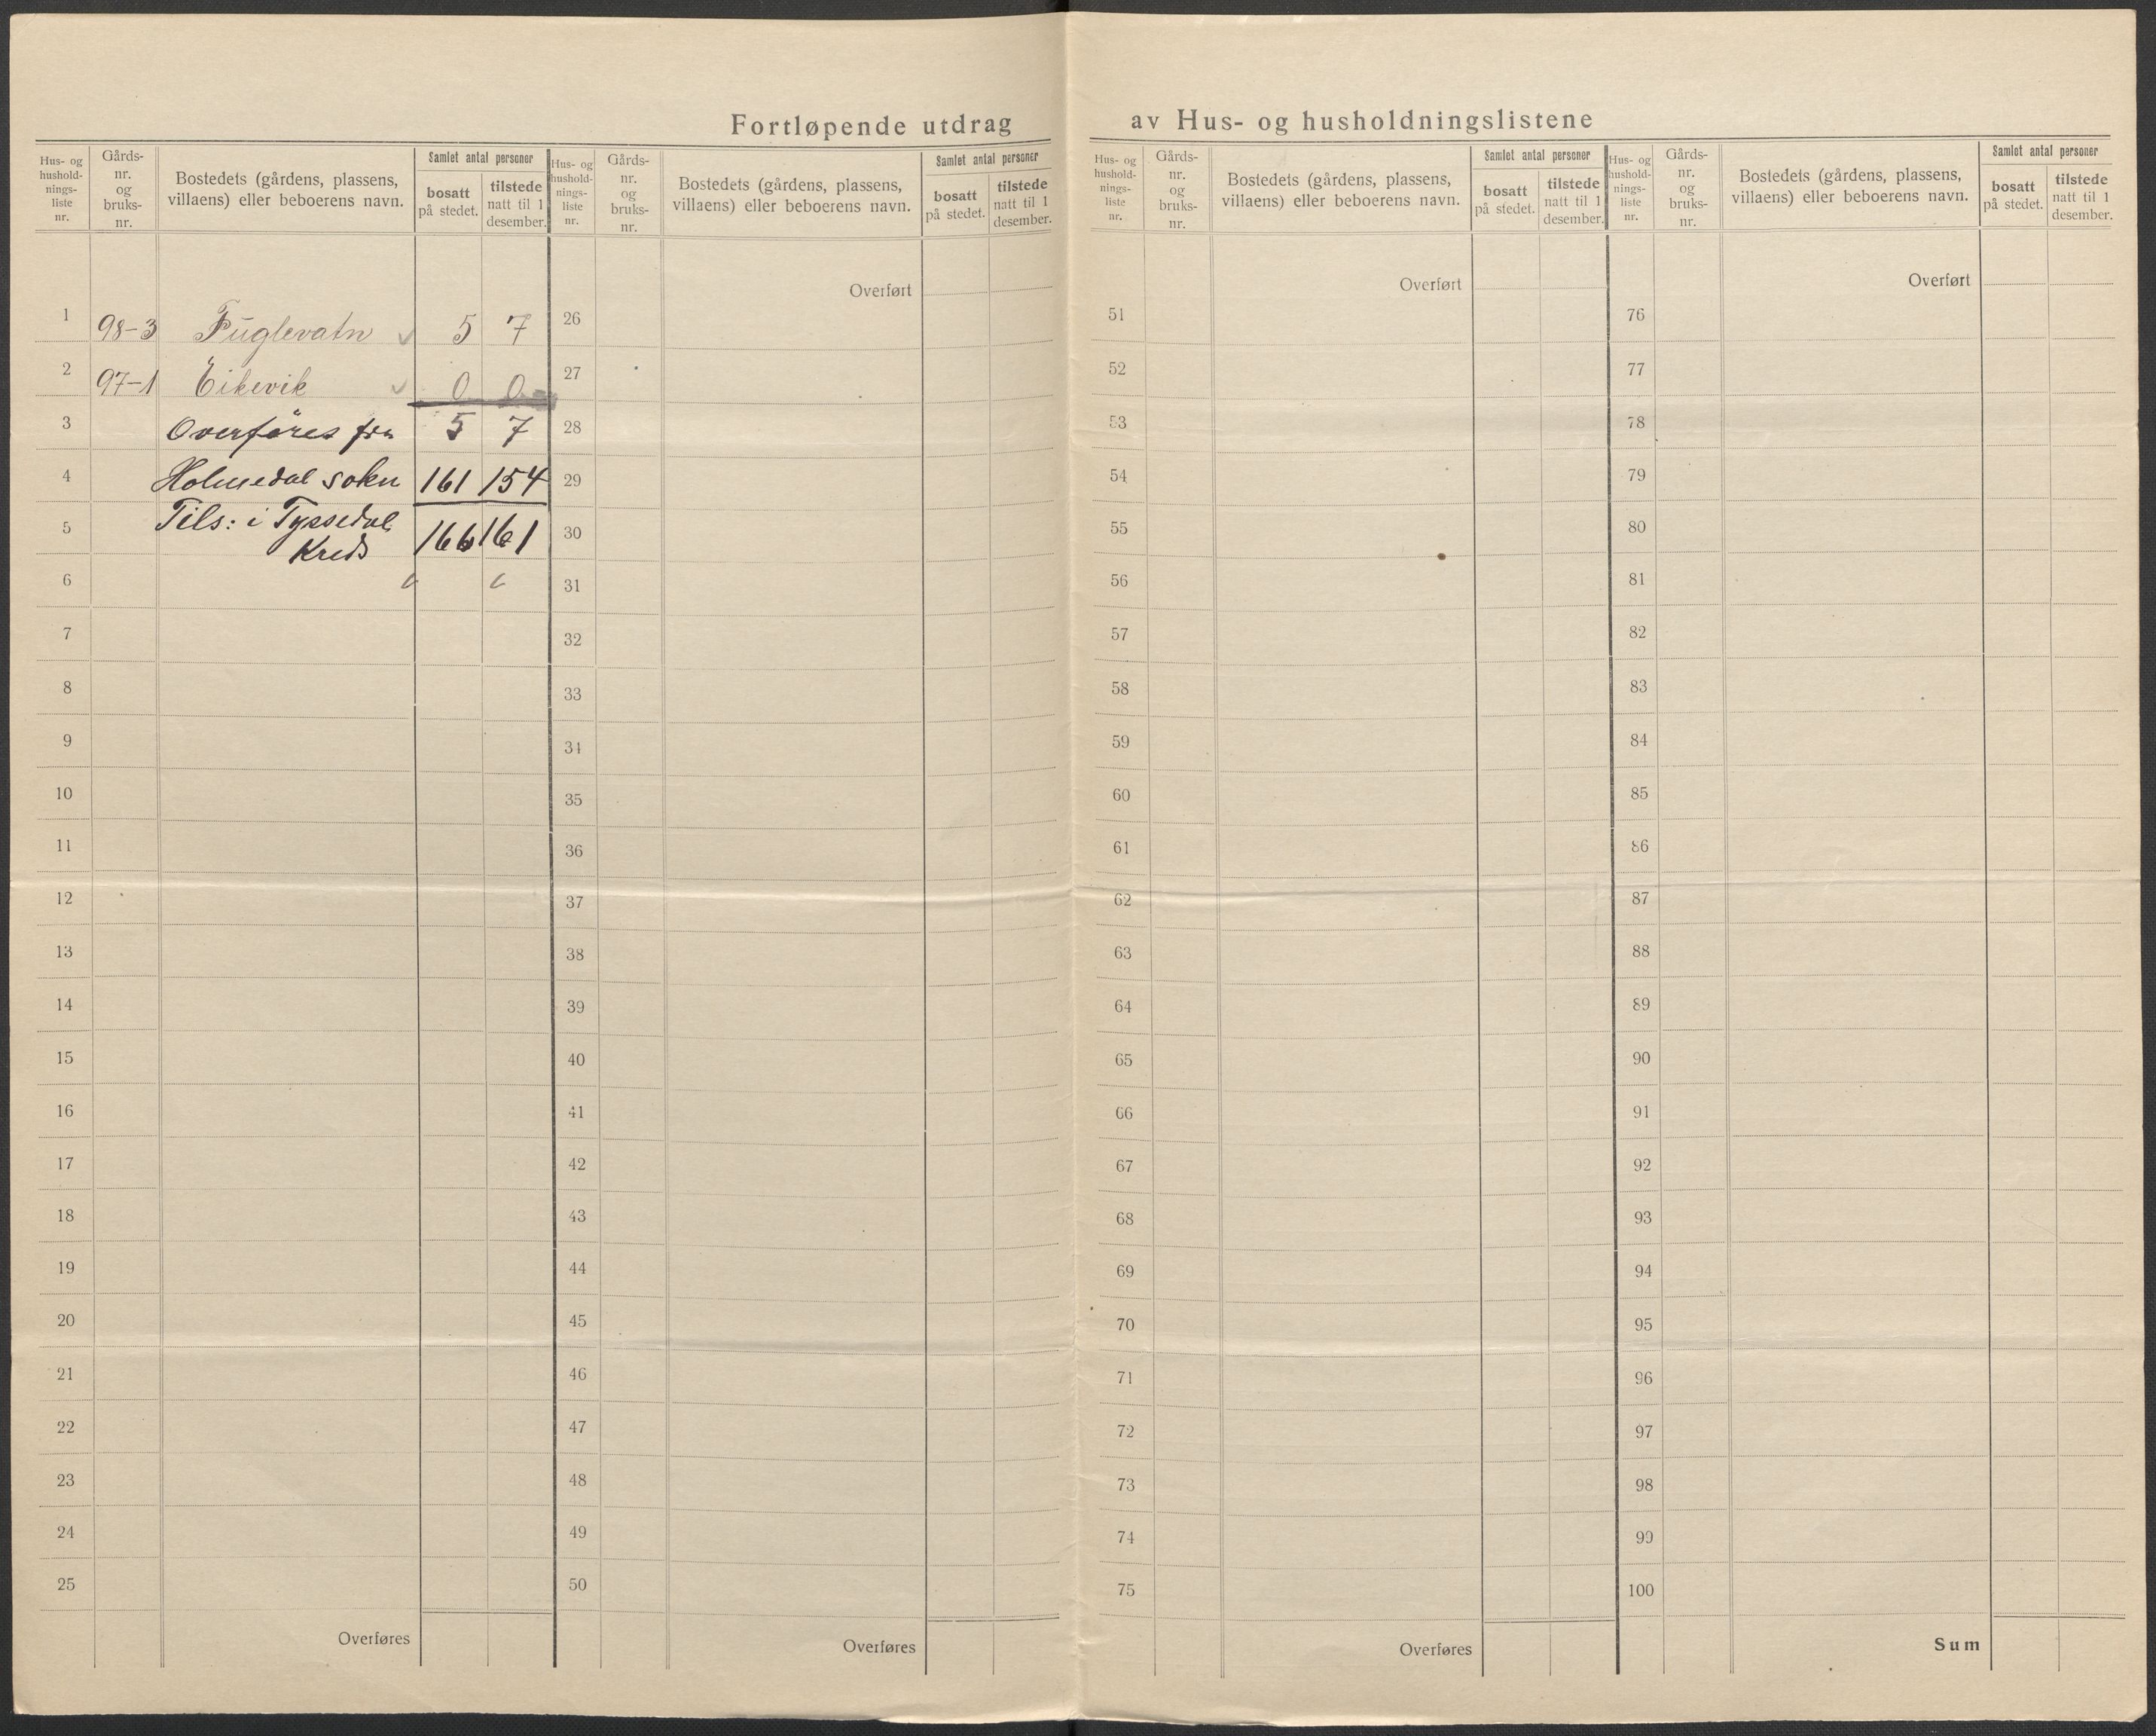 Fortløpende utdrag av Hus- og husholdningslistene
Hus- og
hushold-
nings-
liste
nr.
Gårds-
nr.
og
bruks-
nr.
Bostedets (gårdens, plassens,
villaens) eller beboerens navn.
Samlet antal personer
bosatt
på stedet.
tilstede
natt til 1
desember.
1 98-3 Fuglevatn 5 7
2 97-1 Eikevik 0 0
3 Overføres fra 5 7
4 Holmedal sokn 161 154
5 Tils: i Tyssedal
Kreds 166 161
6
7
8
9
10
11
12
13
14
15
16
17
18
19
20
21
22
23
24
25
Overføres
Hus- og
hushold-
nings-
liste
nr.
Gårds-
nr.
og
bruks-
nr.
Bostedets (gårdens, plassens,
villaens) eller beboerens navn.
Samlet antal personer
bosatt
på stedet.
tilstede
natt til 1
desember.
Overført
26
27
28
29
30
31
32
33
34
35
36
37
38
39
40
41
42
43
44
45
46
47
48
49
50
Overføres
Hus- og
hushold-
nings-
liste
nr.
Gårds-
nr.
og
bruks-
nr.
Bostedets (gårdens, plassens,
villaens) eller beboerens navn.
Samlet antal personer
bosatt
på stedet.
tilstede
natt til 1
desember.
Overført
51
52
53
54
55
56
57
58
59
60
61
62
63
64
65
66
67
68
69
70
71
72
73
74
75
Overføres
Hus- og
hushold-
nings-
liste
nr.
Gårds-
nr.
og
bruks-
nr.
Bostedets (gårdens, plassens,
villaens) eller beboerens navn.
Samlet antal personer
bosatt
på stedet.
tilstede
natt til 1
desember.
Overført
76
77
78
79
80
81
82
83
84
85
86
87
88
89
90
91
92
93
94
95
96
97
98
99
100
Sum